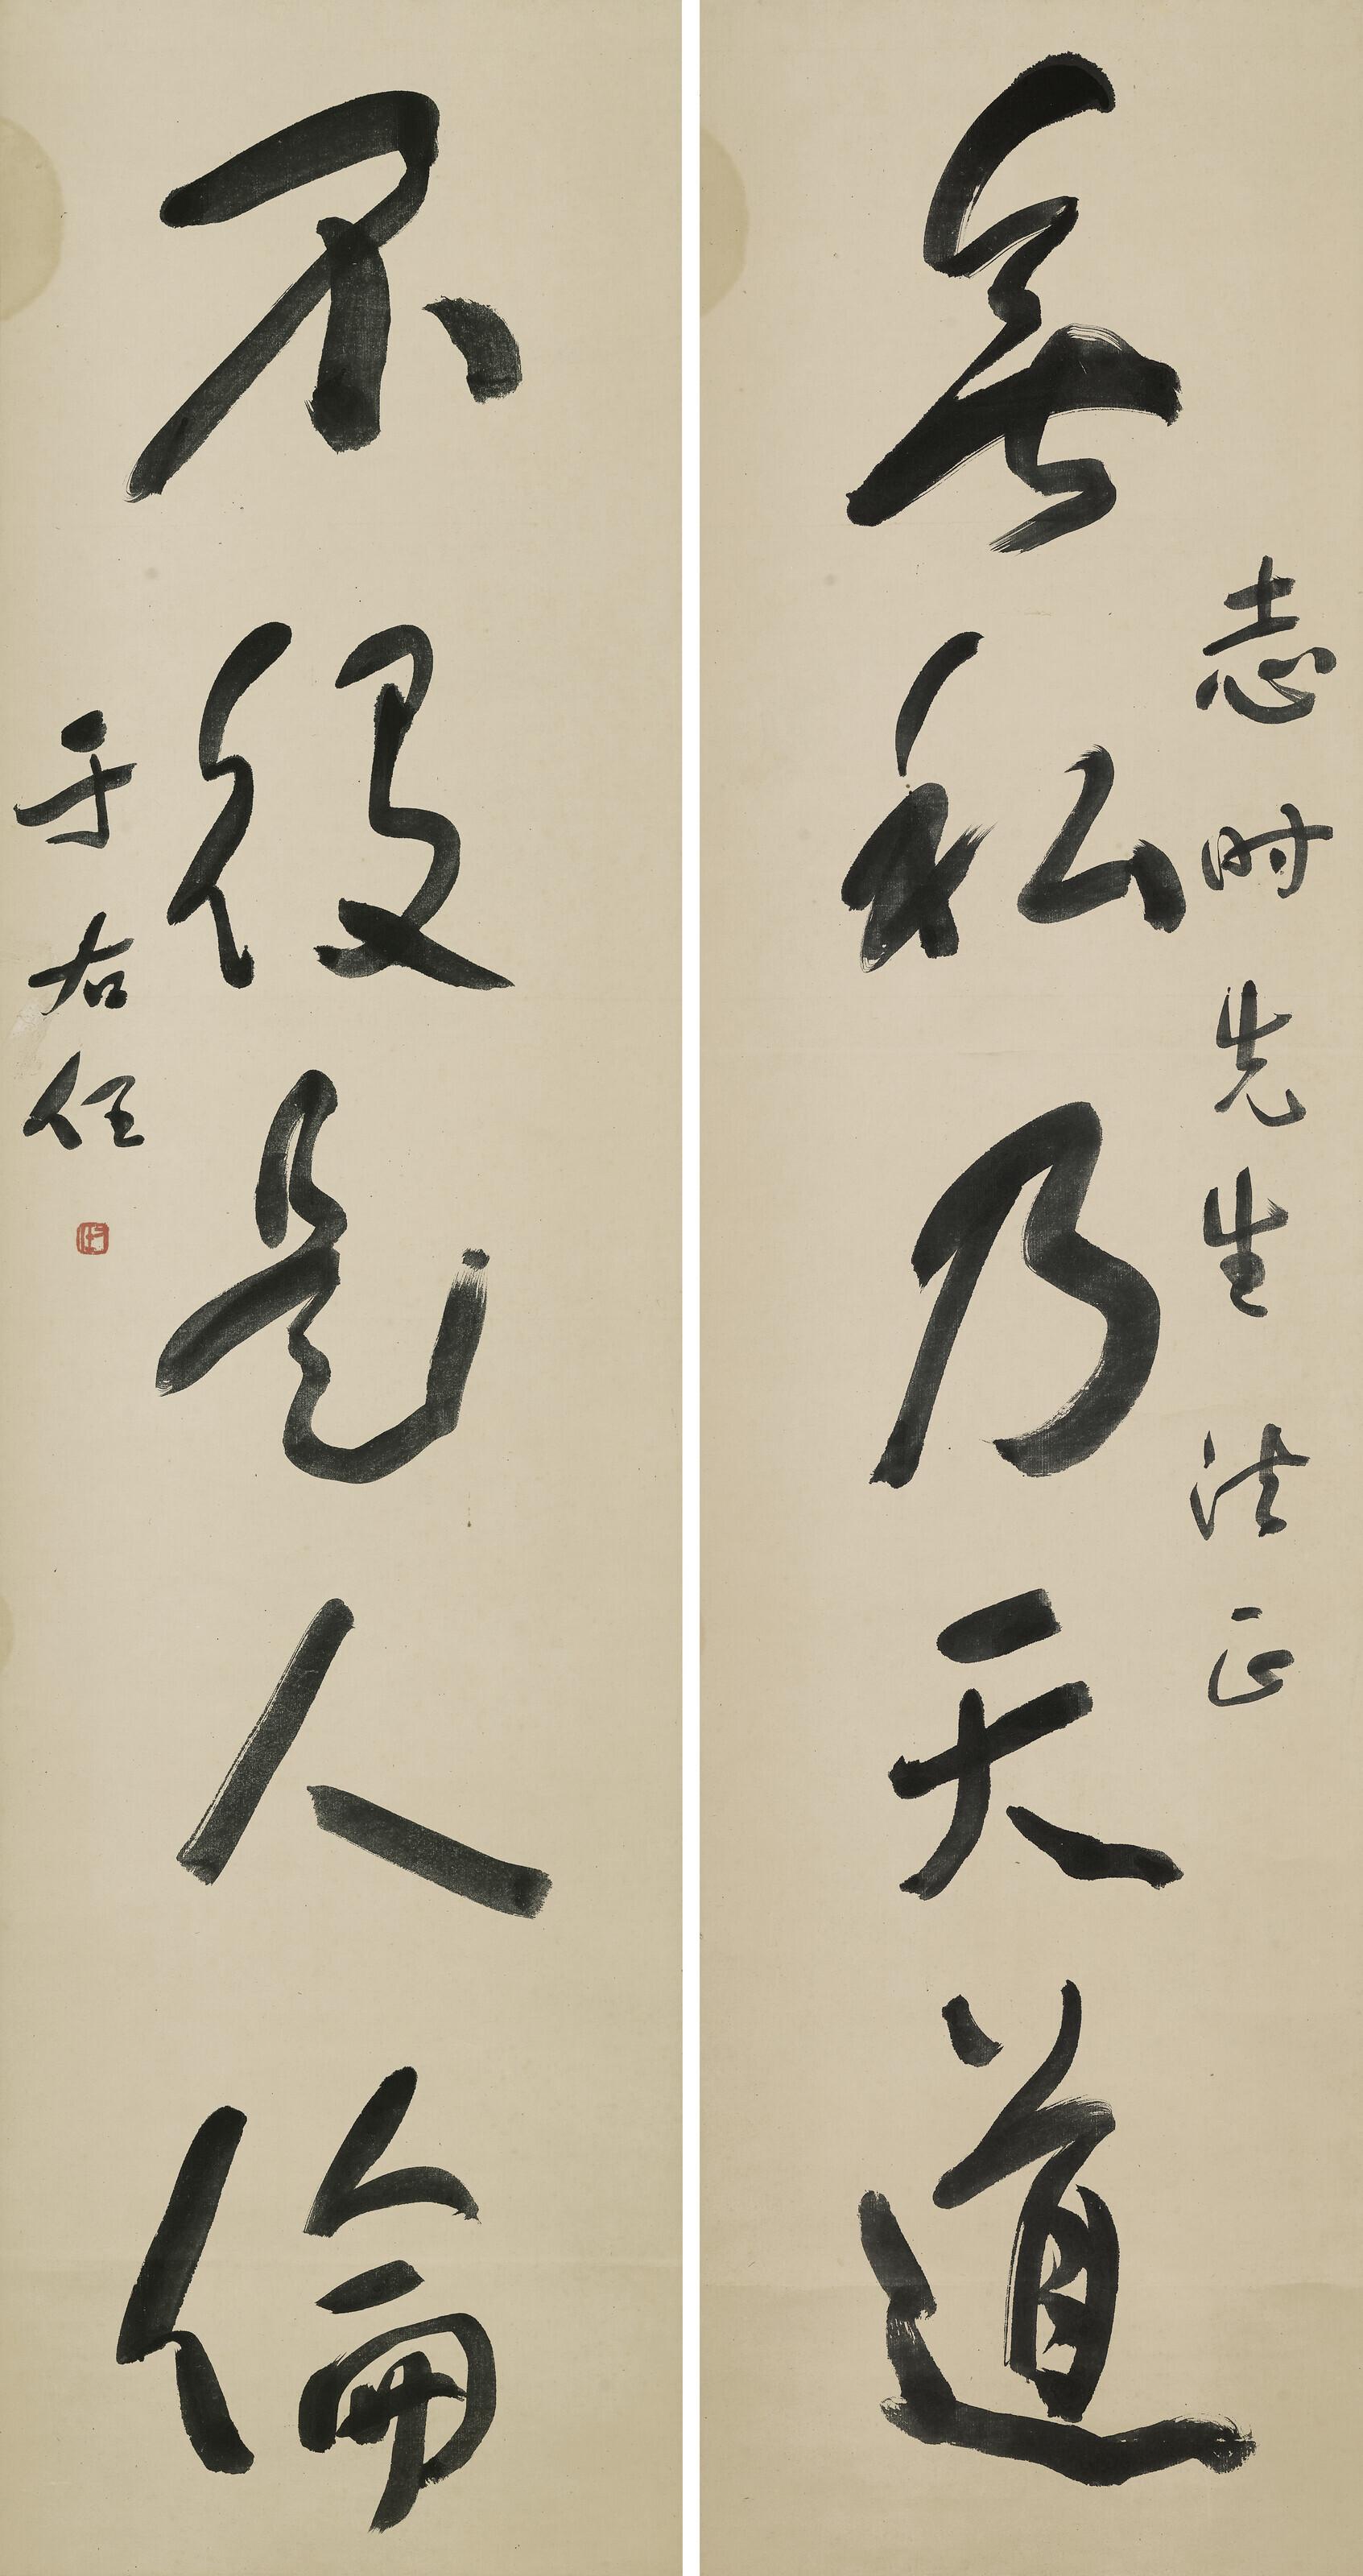 志时先生法正
無私乃天道
不役是人倫
于右任